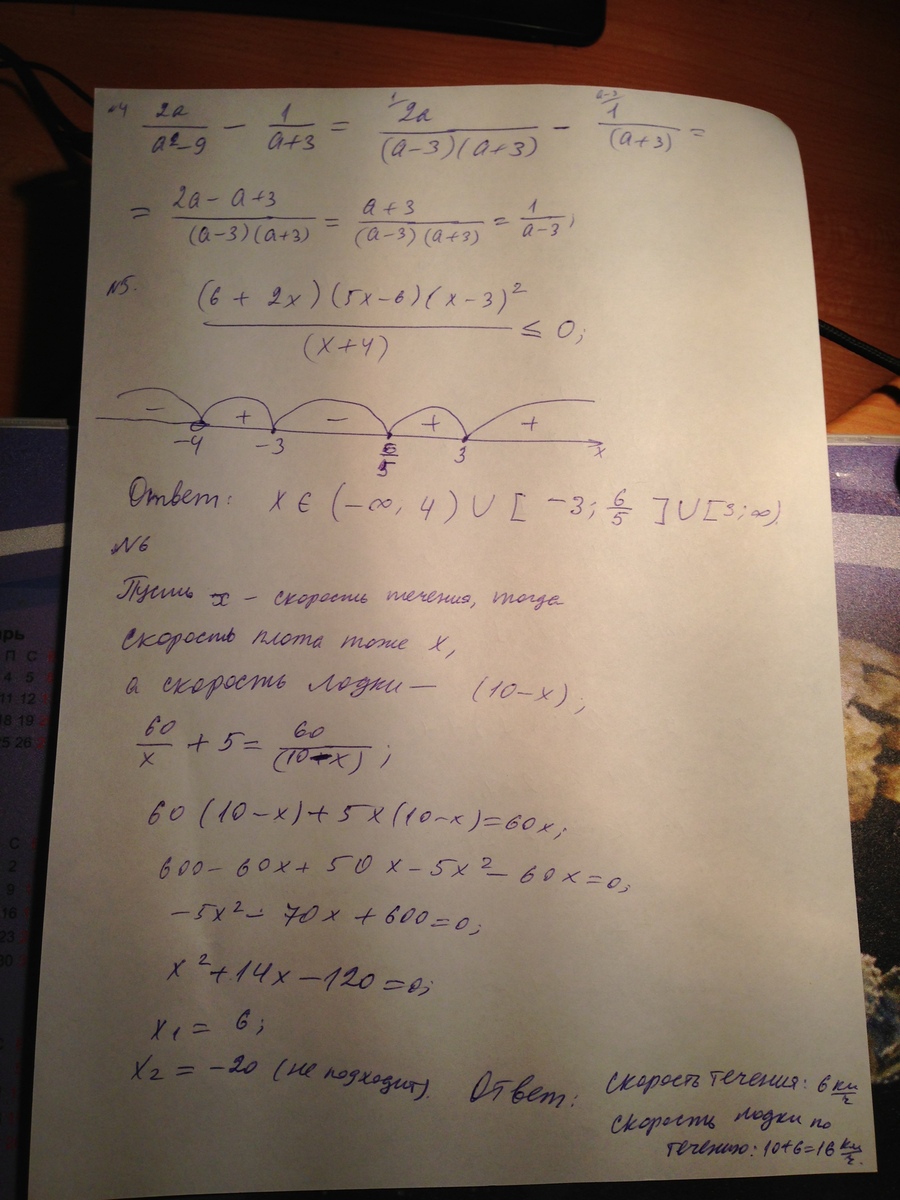 №4 2a/(a²-9) - 1/(a+3) = 1/ 2a/((a-3)(a+3)) - a-3/ 1/(a+3) =
= (2a-a+3)/((a-3)(a+3)) = (a+3)/((a-3)(a+3)) = 1/(a-3);
№5. ((6+2x)(5x-6)(x-3)²)/(x+4) ≤ 0;
- + - + +
-4 -3 6/5 3 x
Ответ: x ∈ (-∞, 4) ∪ [-3; 6/5] ∪ [3; ∞)
№6
Пусть x - скорость течения, тогда
скорость плота тоже x,
а скорость лодки — (10-x);
60/x + 5 = 60/(10-x);
60(10-x)+5x(10-x)=60x;
600-60x+50x-5x²-60x=0;
-5x²-70x+600=0;
x²+14x-120=0;
x₁ = 6;
x₂ = -20 (не подходит). Ответ: скорость течения: 6 км/ч
скорость лодки по
течению: 10+6=16 км/ч.
П С
4 5
11 12
18 19
25 26
С
2
9
16
23
30